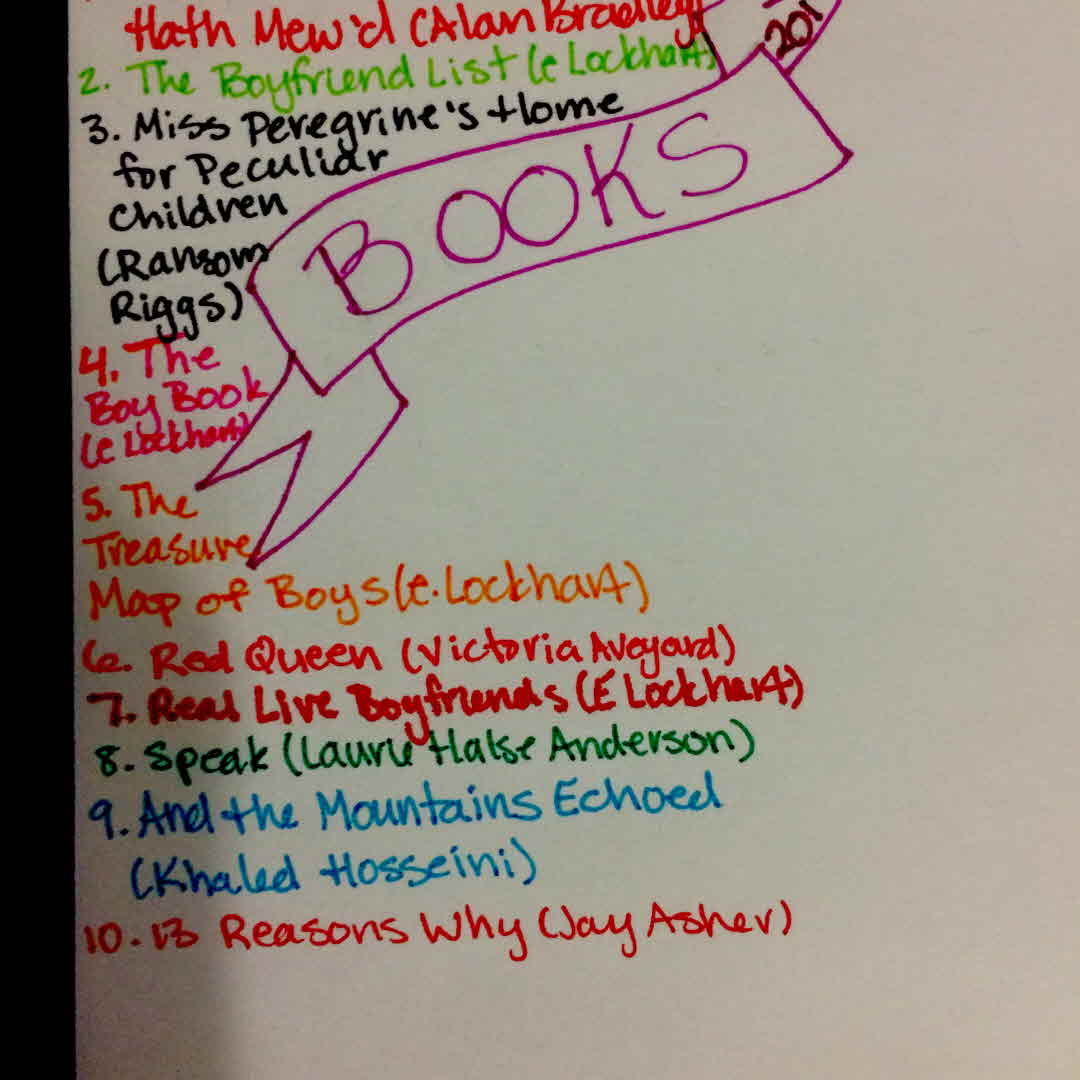 Hath Mew'd (Alan Bradley)
201
2. The Boyfriend List (e Lockhart)
3. Miss Peregrine's Home
for Peculiar
Children
(Ransom
Riggs)
BOOKS
4. The
Boy Book
(e Lockhart)
5. The
Treasure
Map of Boys (e. Lockhart)
6. Red Queen (Victoria Aveyard)
7. Real Live Boyfriends (E Lockhart)
8. Speak (Laurie Halse Anderson)
9. And the Mountains Echoed
(Khaled Hosseini)
10. 13 Reasons Why (Jay Asher)